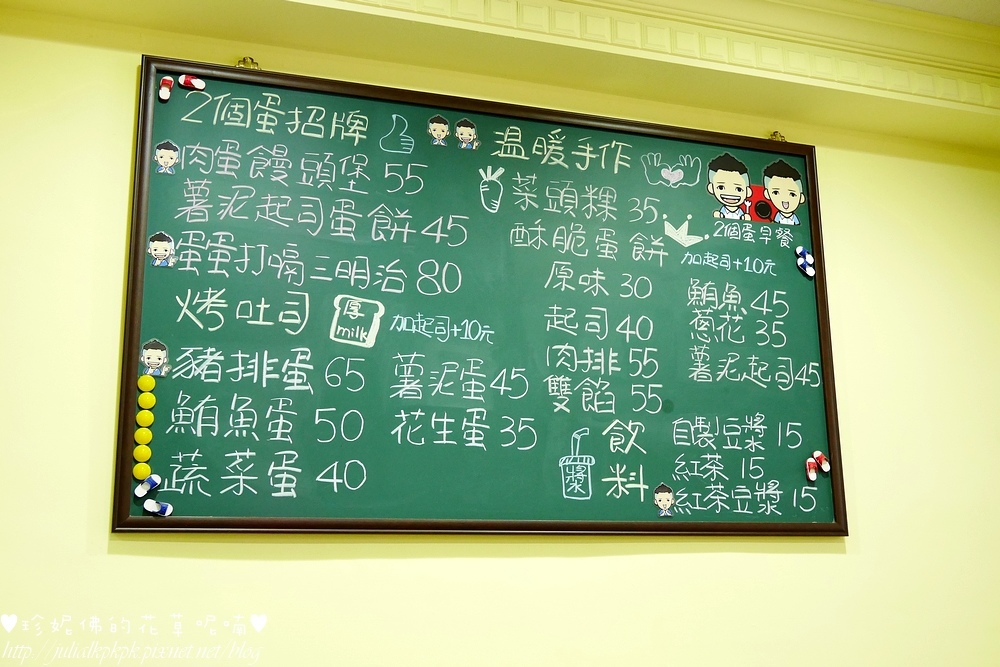 2個蛋招牌
肉蛋饅頭堡 55
薯泥起司蛋餅 45
蛋蛋打嗝三明治 80
烤吐司
厚
milk
加起司+10元
豬排蛋 65
鮪魚蛋 50
蔬菜蛋 40
薯泥蛋 45
花生蛋 35
温暖手作
菜頭粿 35
酥脆蛋餅
2個蛋早餐
加起司+10元
原味 30
起司 40
肉排 55
雙餡 55
鮪魚 45
蔥花 35
薯泥起司 45
漿
飲料
自製豆漿 15
紅茶 15
紅茶豆漿 15
♥珍妮佛的花草呢喃♥
http://julialkpkpk.pixnet.net/blog